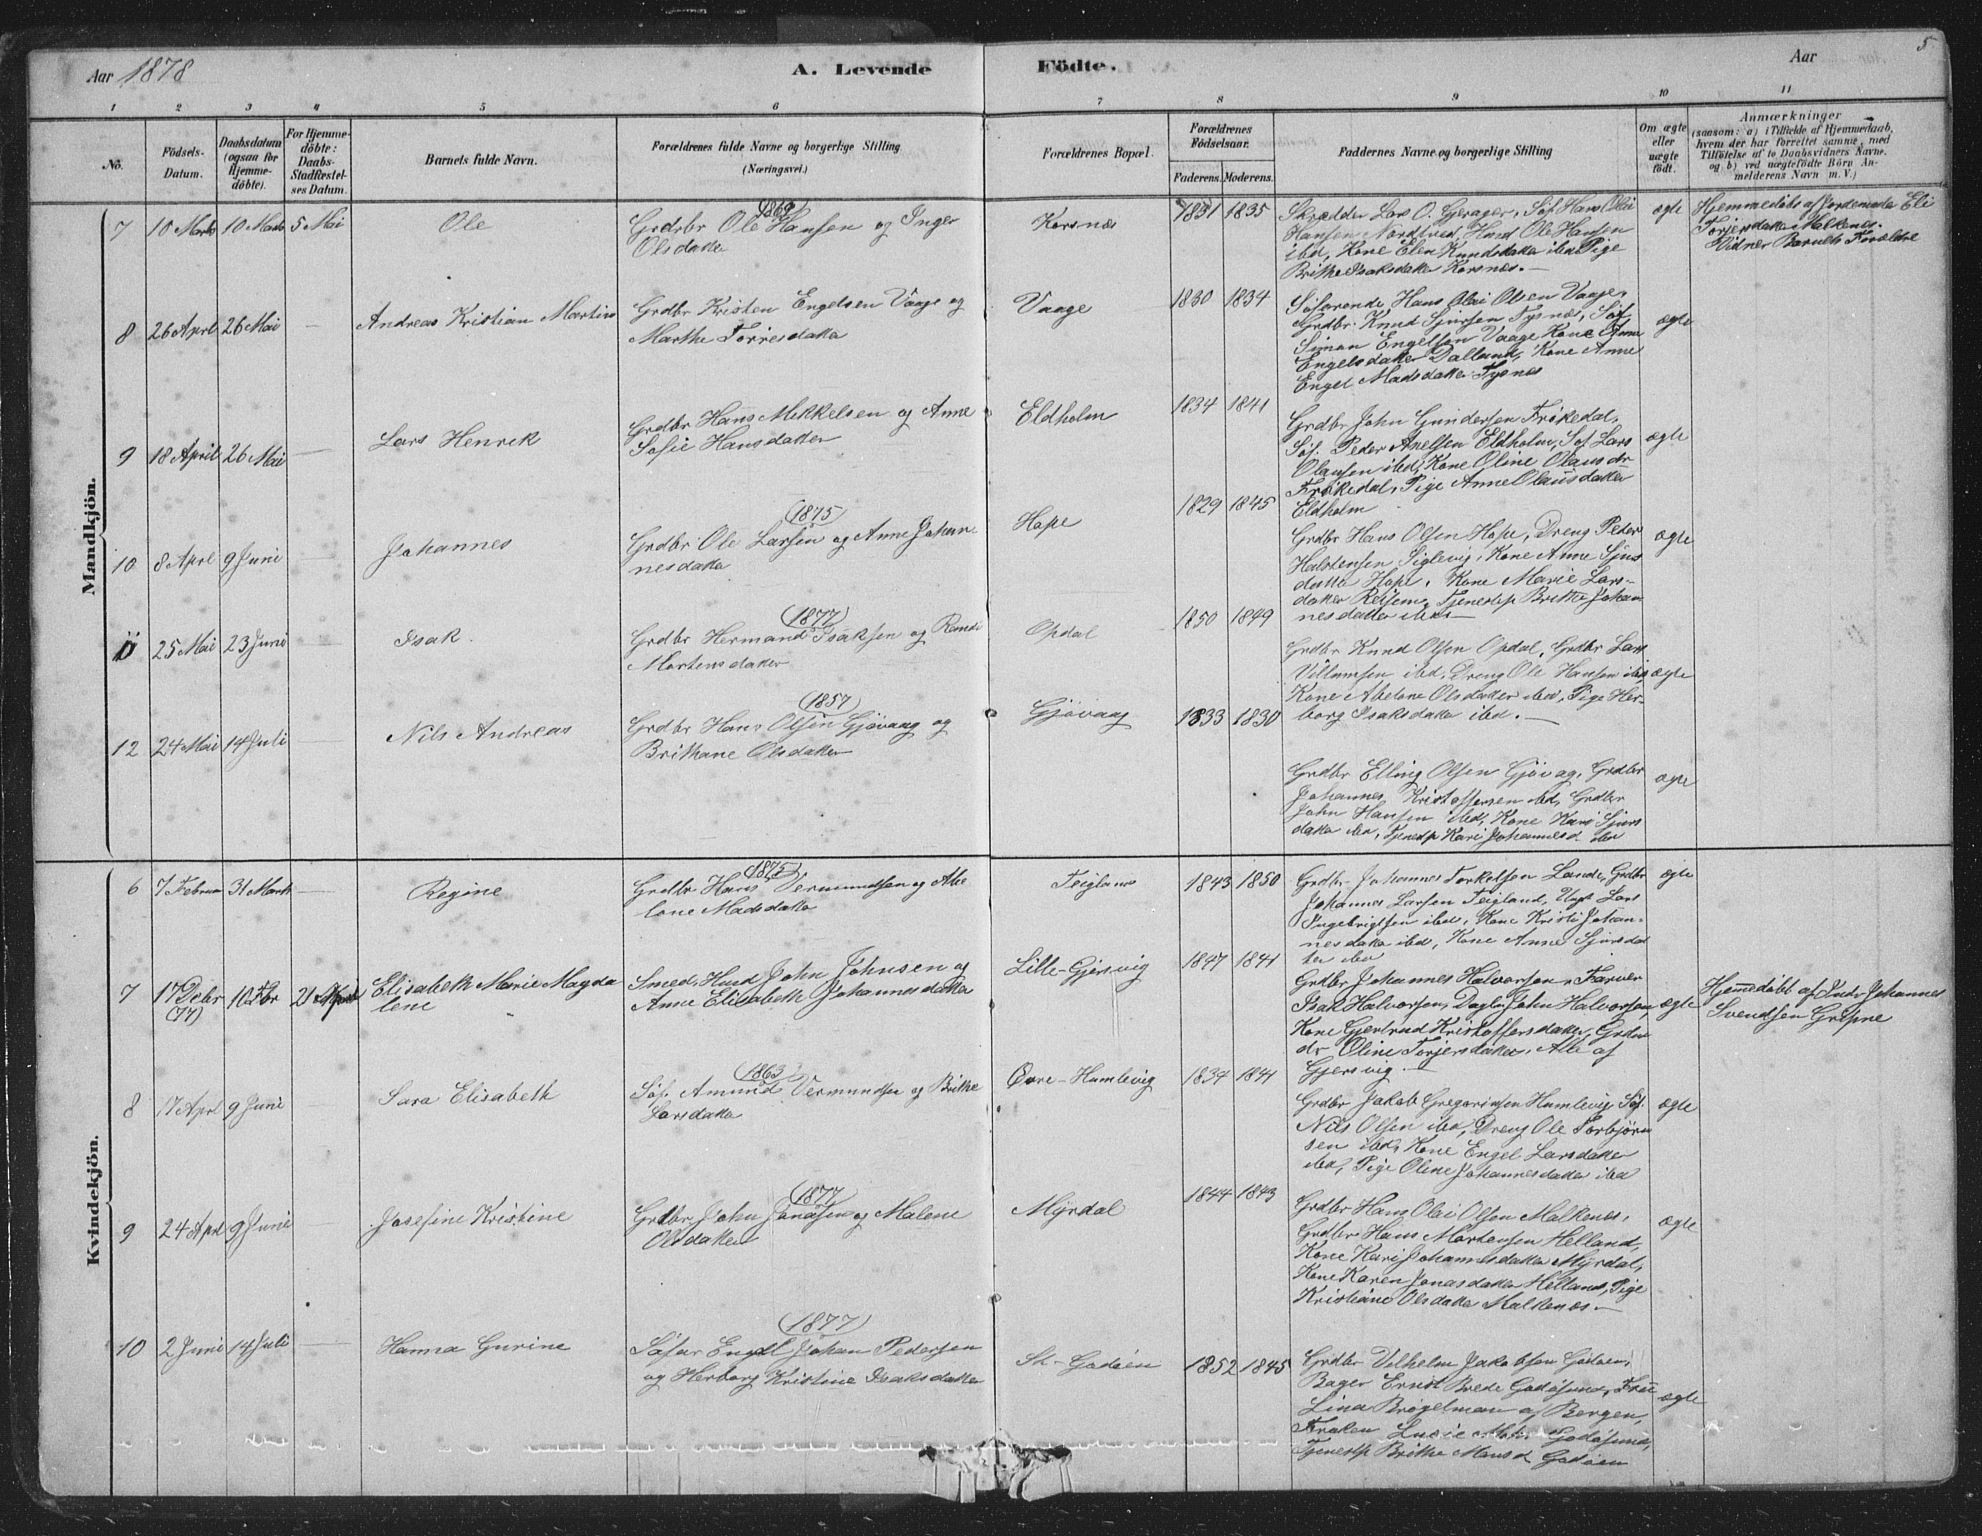 Aar 1878 A. Levende Födte. Aar 5
1 2 3 4 5 6 7 8 9 10 11
Nö.
Födsels-
Datum.
Daabsdatum
(ogsaa for
Hjemme-
döbte).
For Hjemme-
döbte:
Daabs-
Stadfæstel-
ses Datum.
Barnets fulde Navn.
Forældrenes fulde Navne og borgerlige Stilling
(Næringsvei.)
Forældrenes Bopæl.
Forældrenes
Födselsaar.
Faderens. Moderens.
Faddernes Navne og borgerlige Stilling
Om ægte
eller
uægte
födt.
Anmærkninger
(saasom: a) i Tilfælde af Hjemmedaab,
hvem der har forrettet samme, med
Tilföielse af to Daabsvidners Navne.
og b) ved uægtefödte Börn An-
melderens Navn m. V.)
Mandkjön.
7 10 Marts 10 Marts 5 Mai Ole
Grdbr Ole Hansen og Inger
Olsdatter
Korsnæs 1831 1835
Skrædder Lars O. Gjerager, Søf. Hans Olai
Hansen Nordtved, Husd Ole Hansen
ibd, Kone Elen Knudsdatter ibd Pige
Brithe Isaksdatter Korsnæs.
ægte
Hjemmedöbt af Jordemoder Eli
Torjersdatter Malkenes.
Vidner Barnets Forældre
8 26 April 26 Mai — Andreas Kristian Martin
Grdbr Kristen Engelsen Vaage og
Marthe Torresdatter
Vaage 1830 1834
Søfarende Hans Olai Olsen Vaage,
Grdbr. Knud Sjursen Tysnæs, Søf
Simon Engelsen Vaage Kone Anna
Engelsdatter Dalland, Kone Anne
Engel Madsdatter Tysnæs
ægte
9 18 April 26 Mai — Lars Henrik
Grdbr Hans Mikkelsen og Anne
Sofie Hansdatter
Eldholm 1834 1841
Grdbr John Gundersen Frøkedal,
Søf. Peder Axelsen Eldholm, Søf Lars
Olausen ibd, Kone Oline Olausdr
Frøkedal, Pige Anne Olausdatter
Eldholm
ægte
10 8 April 9 Juni — Johannes
(1875)
Grdbr Ole Larsen og Anne Johan
nesdatter
Hope 1829 1845
Grdbr Hans Olsen Hope, Dreng Peder
Halstensen Siglevig, Kone Anne Sjurs
datter Hope, Kone Marie Lars-
datter Reisem, Tjenestp Brithe Johan
nesdatter ibd
ægte
11 25 Mai 23 Juni — Isak
(1877)
Grdbr Hermand Isaksen og Randi
Mortensdatter
Opdal 1850 1849
Grdbr Knud Olsen Opdal, Grdbr Lars
Villumsen ibd, Dreng Ole Hansen ibd,
Kone Abelone Olsdatter ibd, Pige Her-
borg Isaksdatter ibd.
ægte
12 24 Mai 14 Juli Nils Andreas
(1857)
Grdbr Hans Olsen Gjøvaag og
Brithane Olsdatter
Gjøvaag 1833 1830
Grdbr Elling Olsen Gjøvag, Grdbr
Johannes Kristoffersen ibd, Grdbr
John Hansen ibd, Kone Kari Sjurs
datter ibd, Tjenestp Kari Johannesd ibd
ægte
Kvindekjön.
6 7 Februar 31 Marts — Regine
1875
Grdbr Hans Vermundsen og Abe
lone Madsdatter
Teigland 1843 1850
Grdbr Johannes Torkelsen Lande, Grdbr
Johannes Larsen Teigland, Ungk Lars
Ingebrigtsen ibd, Kone Kristi Johan-
nesdatter ibd, Kone Anne Sjursdat
ter ibd
ægte
7 17 Debr (77) 10 Febr 21 April Elisabeth Marie Magda
lene
Smed, Husd John Johnsen og
Anne Elisabeth Johannesdatter
Lille-Gjersvig 1847 1841
Grdbr Johannes Halvorsen, Farver
Isak Halvorsen, Dagln John Halvorsen,
Kone Gjertrud Kristoffersdatter, Grdm
dr Oline Torjersdatter, Alle af
Gjersvig.
ægte
Hjemmedöbt af Indr Johannes
Svendsen Gripne
8 17 April 9 Juni — Sara Elisabeth
(1863)
Søf. Amund Vermundsen og Brithe
Larsdatter
Øvre-Humlevig 1834 1841
Grdbr Jakob Gregoriusen Humlevig, Søf.
Nils Olsen ibd, Dreng Ole Torbjørn
sen ibd, Kone Engel Larsdatter
ibd, Pige Oline Johannesdatter ibd
ægte
9 24 April 9 Juni — Josefine Kristine
(1877)
Grdbr John Jonassen og Malene
Olsdatter
Myrdal 1844 1843
Grdbr Hans Olai Olsen Malkenæs,
Grdbr Hans Mortensen Helland,
Kone Kari Johannesdatter Myrdal,
Kone Karen Jonasdatter Helland, Pige
Kristiane Olsdatter Malkenæs.
ægte
10 2 Juni 14 Juli — Hanna Gurine
(1877)
Søfar Engel Johan Pedersen
og Herborg Kristine Isaksdatter
St-Godøen 1852 1845
Grdbr Vilhelm Jakobsen Godøen,
Bager Ernst Brede Godøsund, Frue
Lina Brøgelman af Bergen,
Frøken Lucie Godøsund,
Tjenestp Brithe Monsd Godøen
ægte